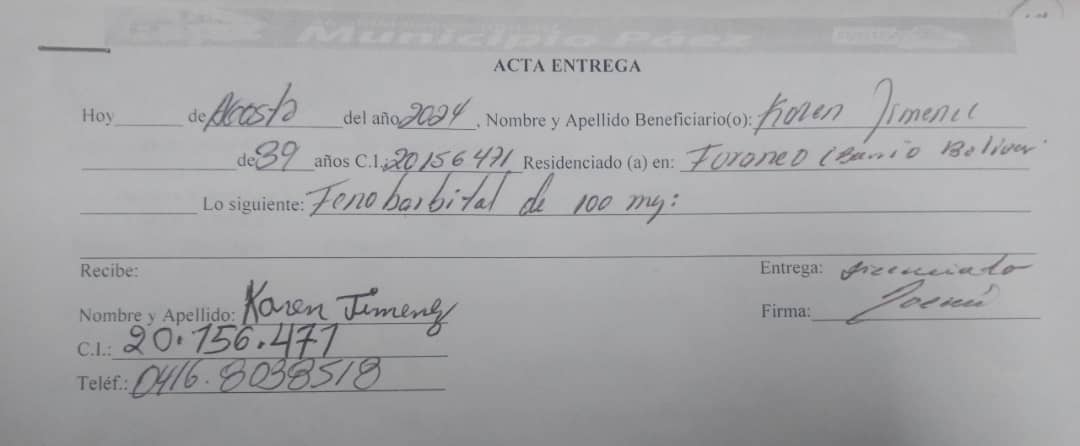 Municipio Páez
ACTA ENTREGA
Hoy______ de Agosto del año 2024, Nombre y Apellido Beneficiario(o): Karen Jimenez
de 39 años C.I.: 20156471 Residenciado (a) en: Foraneo (Barrio Bolivar
Lo siguiente: Fenobarbital de 100 mg:
Recibe:
Entrega: Licenciado
Nombre y Apellido: Karen Jimenez
Firma:
C.I.: 20.156.471
Teléf.: 0416.8038518